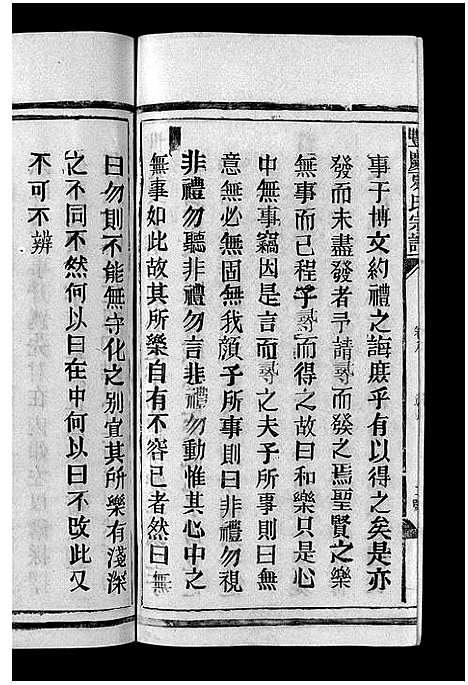 事于博文約禮之誨庶乎有以得之矣是亦
發而未盡發者予請尋而發之焉聖賢之樂
無事而已程子尋而得之故曰和樂只是心
中無事竊因是言而尋之夫子所事則曰無
意無必無固無我顏子所事則曰非禮勿視
非禮勿聽非禮勿言非禮勿動惟其心中之
無事如此故其所樂自有不容已者然曰無
曰勿則不能無守化之別宜其所樂有淺深
之不同不然何以曰在中何以曰不改此又
不可不辨
氏宗譜